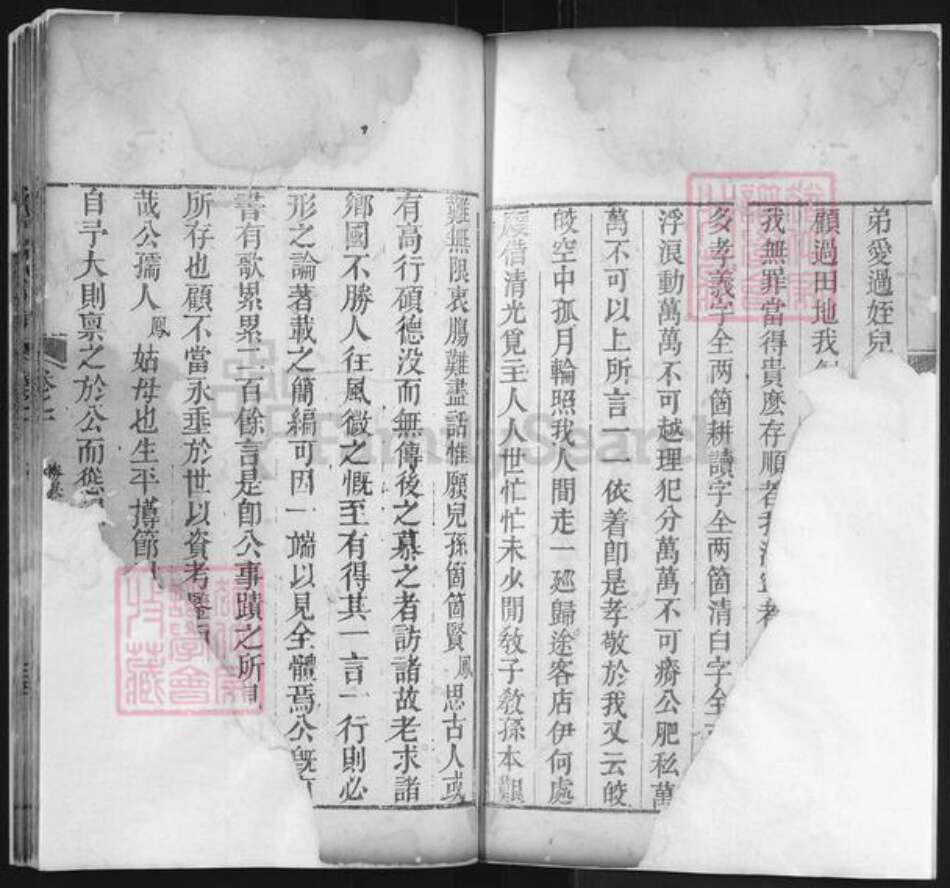 弟愛過姪兒
顧過田地我
我無罪當得貴麽存順者我
多孝義字全两箇耕讀字全两箇清白字全
浮浪動萬萬不可越理犯分萬萬不可瘠公肥私萬
萬不可以上所言一一依着卽是孝敬於我又云皎
皎空中孤月輪照我人間走一廵歸途客店伊何處
借清光覓主人人世忙忙未少閒敎子敎孫本艱
難無限衷膓難盡話惟願兒孫箇箇賢鳳思古人或
有高行碩德没而無傳後之慕之者訪諸故老求諸
鄉國不勝人往風微之慨至有得其一言一行則必
形之論著載之簡編可因一端以見全體焉公旣
書有歌累累二百餘言是卽公事蹟之所
所存也顧不當永垂於世以資考鑒
哉公孺人鳳姑母也生平撙節
自予大則禀之於公而從
FamilySearch